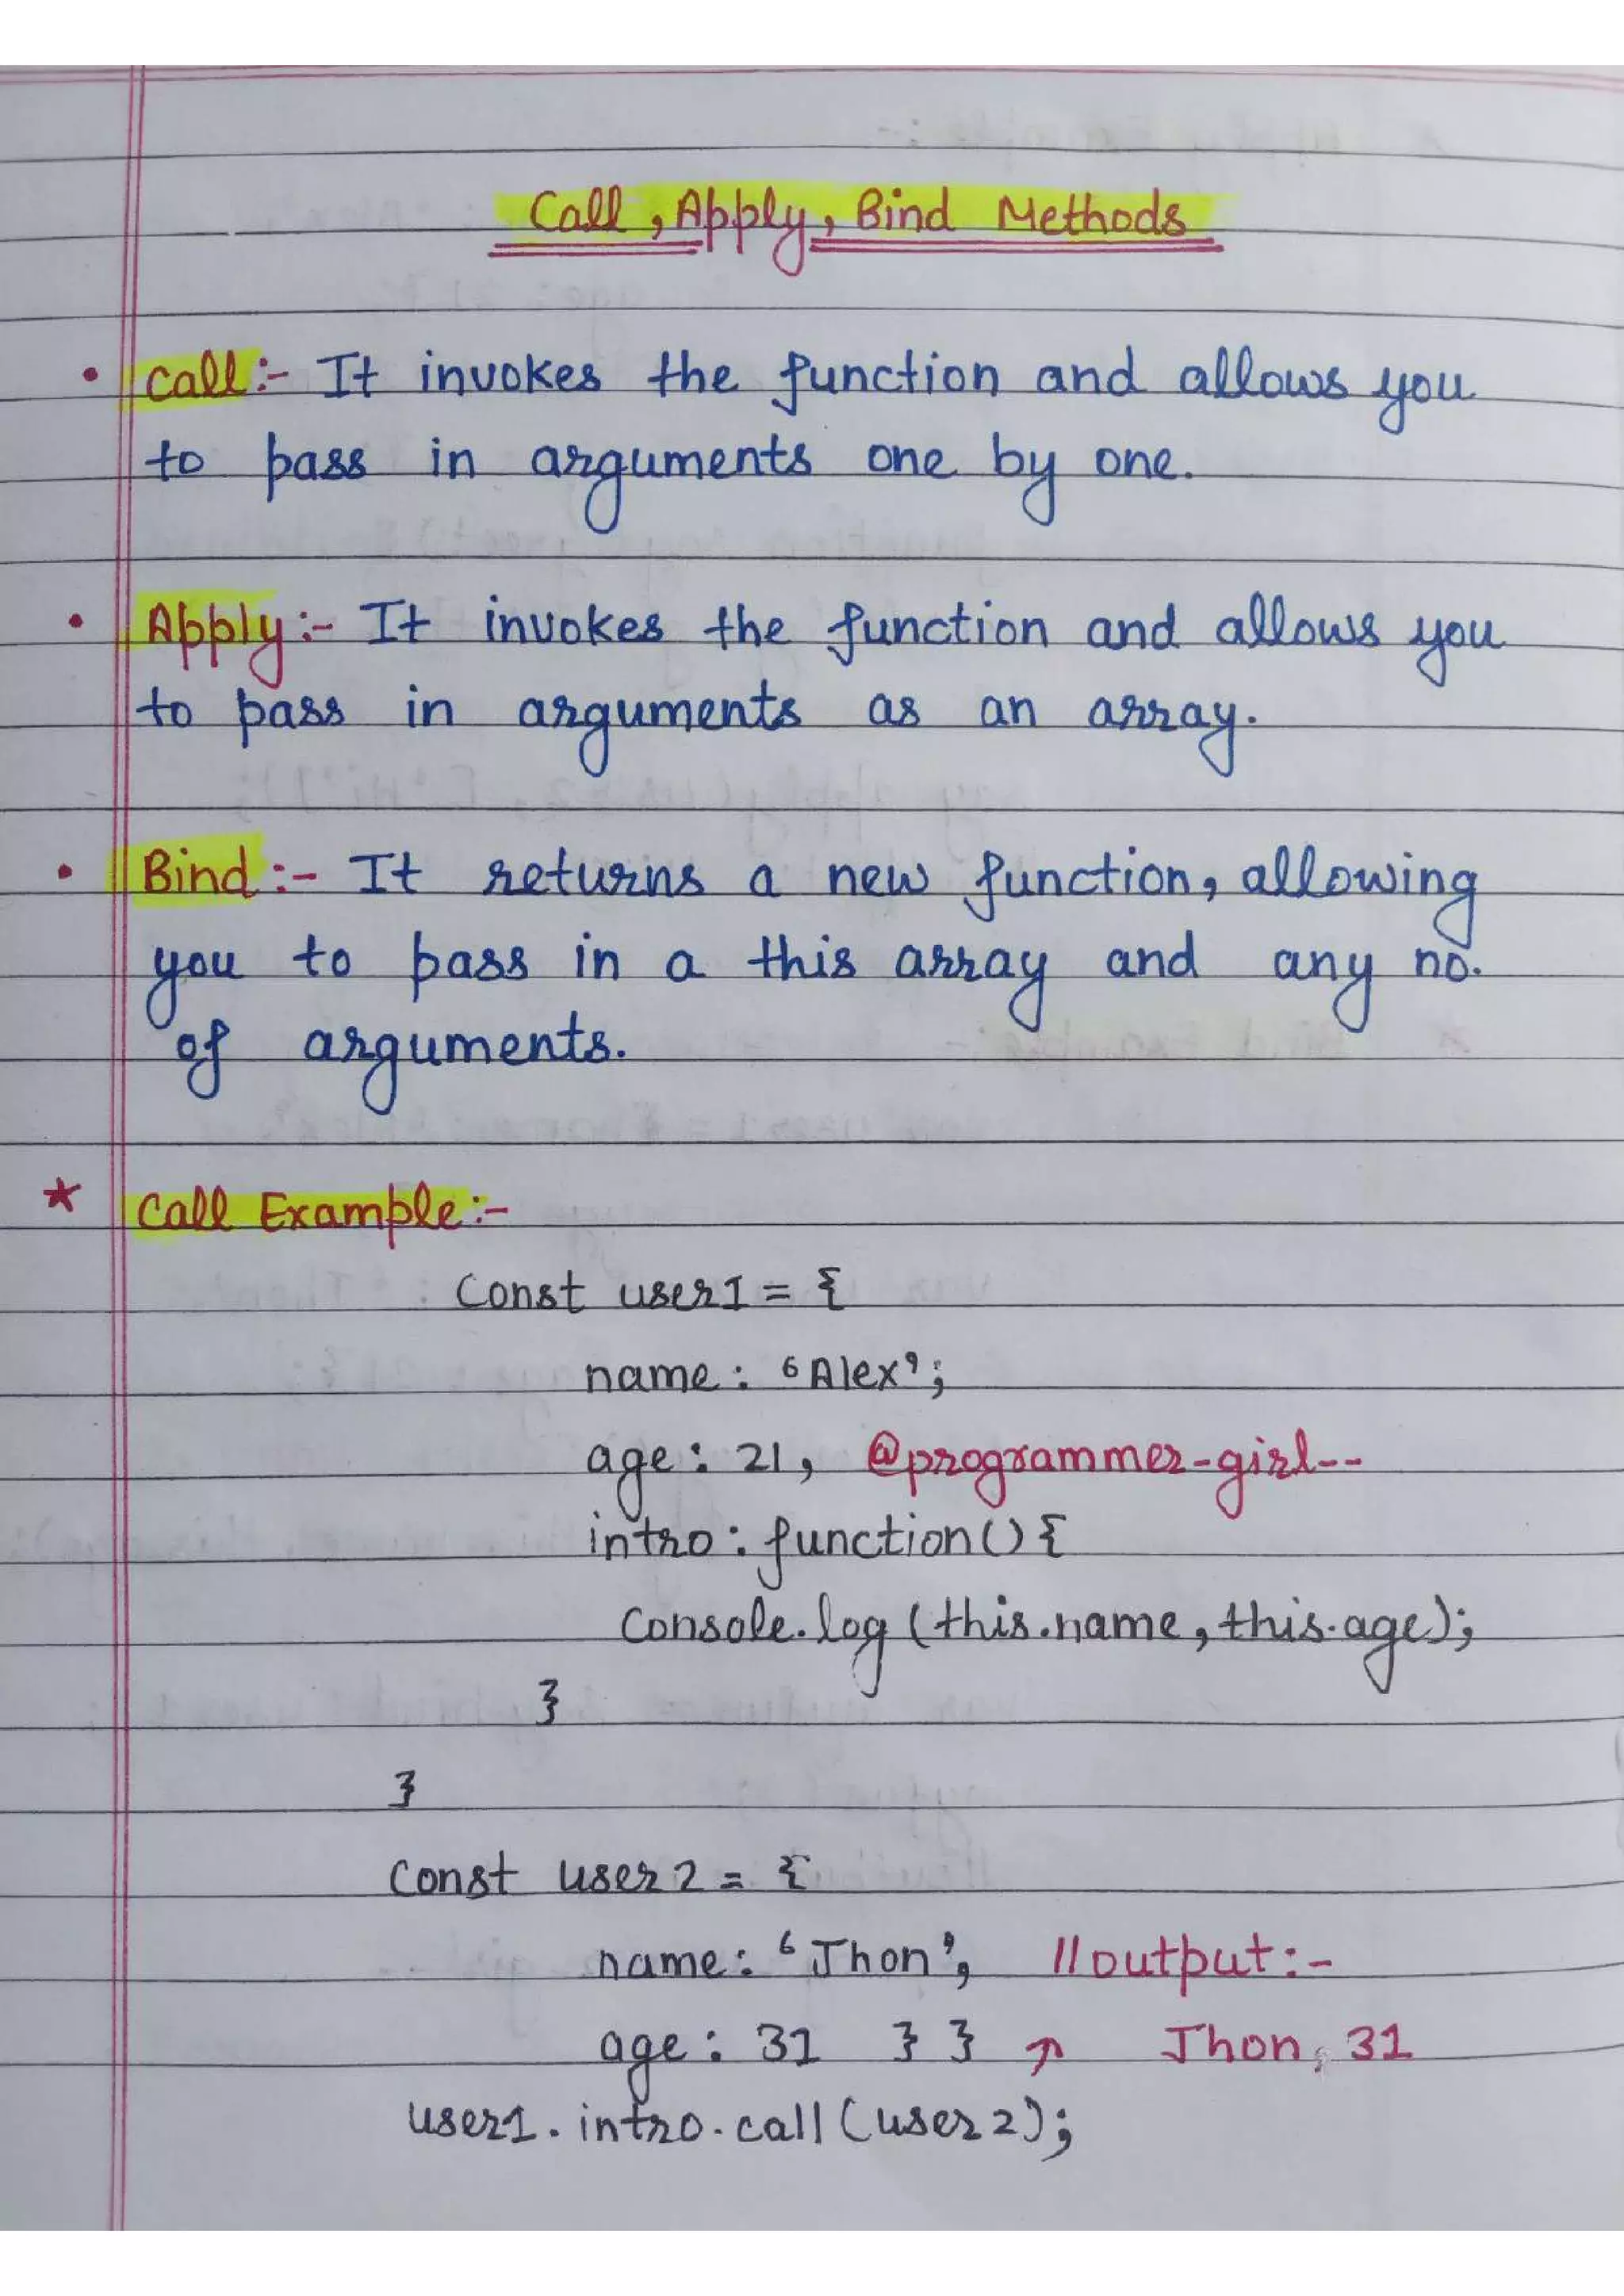 Call, Apply, Bind Methods
• Call :- It invokes the function and allows you
to pass in arguments one by one.
• Apply :- It invokes the function and allows you
to pass in arguments as an array.
• Bind :- It returns a new function, allowing
you to pass in a this array and any no.
of arguments.
★ Call Example :-
Const user1 = {
name : ‘Alex’;
age : 21, @programmer-girl--
intro : function() {
Console.log (this.name, this.age);
}
}
Const user2 = {
name : ‘Jhon’, //output :-
age : 31 } } ↗ Jhon, 31
user1.intro.call(user2);